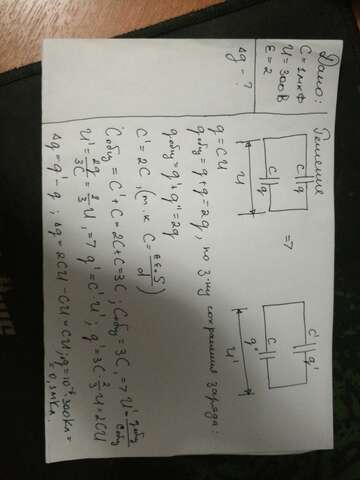 Дано:
C = 1 мкФ
U = 300 В
ε = 2
Δq - ?
Решение
C q
C q
U
=>
C' q'
C q''
U'
q = CU
qобщ = q + q = 2q, по з-ну сохранения заряда:
qобщ = q' + q'' = 2q
C' = 2C, (т.к. C = εε₀S/d)
Cобщ = C' + C = 2C + C = 3C; Cобщ = 3C, => U' = qобщ/Cобщ
U' = 2q/3C = 2/3 U, => q' = C'·U'; q' = 3C 2/3 U = 2CU
Δq = q' - q; Δq = 2CU - CU = CU; q = 10⁻⁶·300 Кл =
= 0,3 мКл.